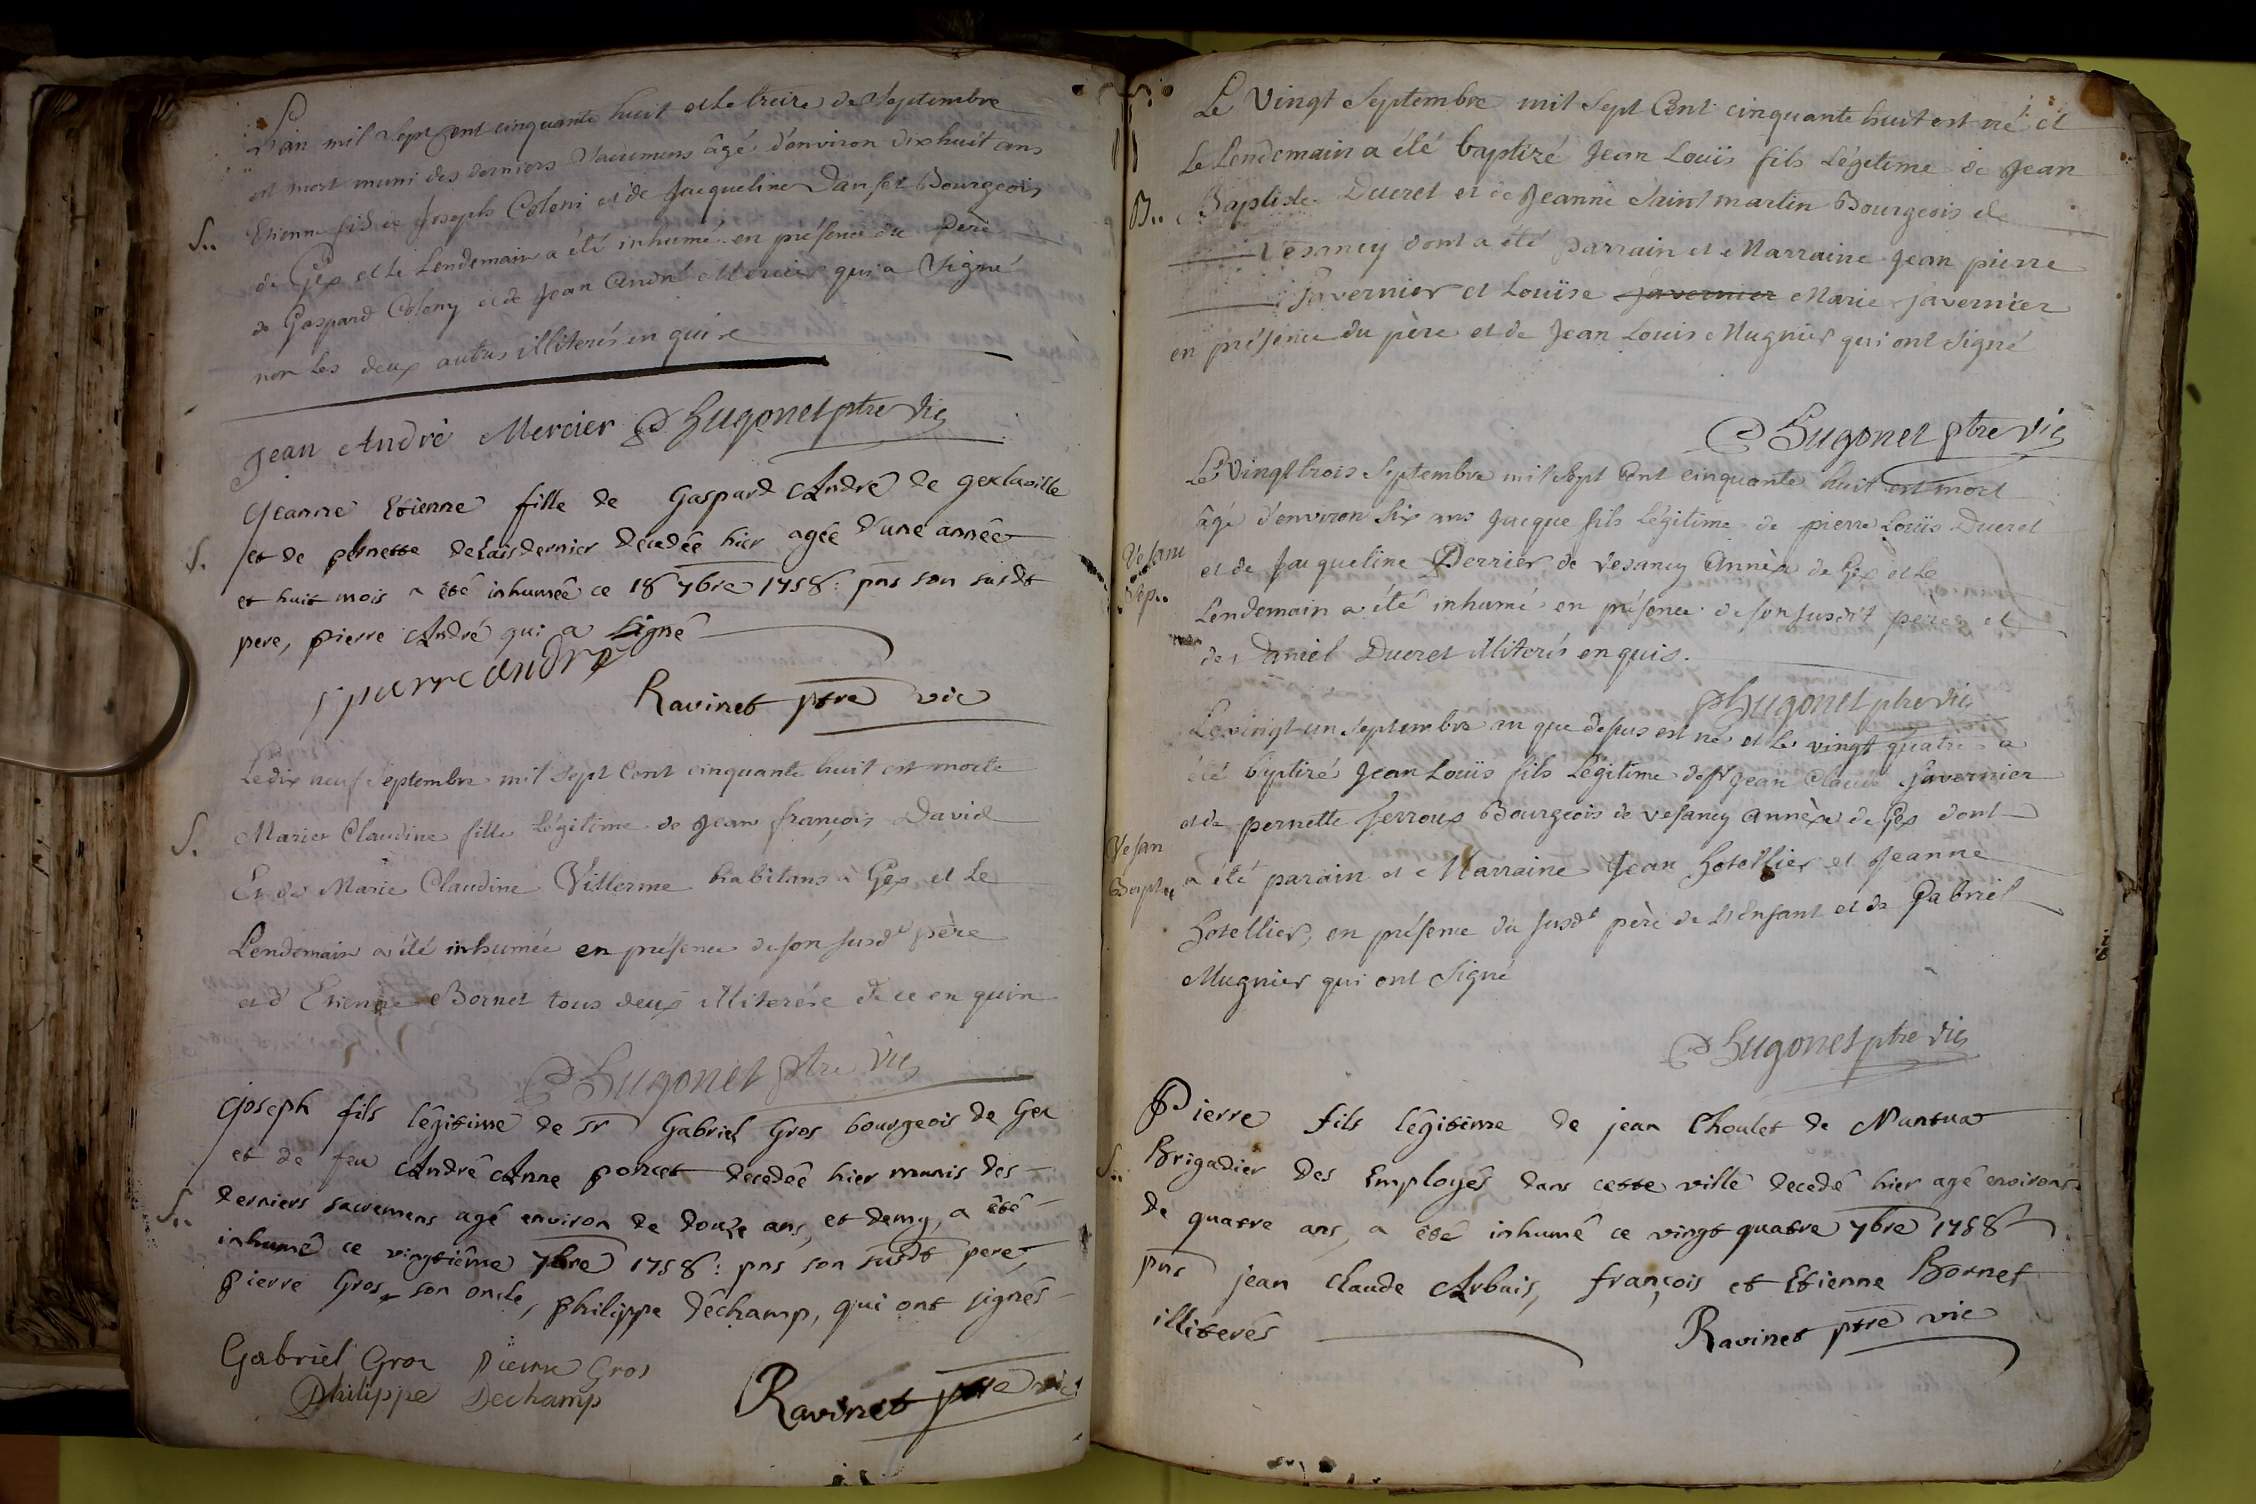 L'an mil sept cent cinquante huit et le treize de Septembre
est mort muni des derniers Sacremens âgé d'environ dix huit ans
S.. Etienne fils de Joseph Coloni et de Jacqueline Danset Bourgeois
de Gex et le Lendemain a été inhumé en présence du père
de Gaspard Colony et de Jean André Mercier qui a Signé
non les deux autres illiterés enquis
Jean André Mercier Hugonet ptre vic
Jeanne Etienne fille de Gaspard André de gex la ville
S. et de pernette delaisdernier decedée hier agée d'une année
et huit mois a été inhumée ce 18 7bre 1758: pns son susdt
pere, pierre André qui a signé
pierre andre
Ravinet ptre vic
Le dix neuf Septembre mil Sept Cent cinquante huit est morte
S. Marie Claudine fille Légitime de Jean françois David
Et de Marie Claudine Villerme habitans à Gex et Le
Lendemain a été inhumée en présence de son susdt père
et d'Etienne Bornet tous deux illiterés de ce enquis
Hugonet ptre vic
Joseph fils légitime de Sr Gabriel Gros bourgeois de Gex
et de feu André Anne poncet decedée hier munis des
S.. derniers sacremens agé environ de douze ans, et demy, a été
inhumé ce vingtième 7bre 1758: pns son susdt pere,
pierre Gros, son oncle, philippe déchamp, qui ont signés
Gabriel Gros pierre Gros
Philippe Dechamp
Ravinet ptre vic
Le Vingt Septembre mil Sept Cent cinquante huit est né et
Le Lendemain a été baptizé Jean Louïs fils Légitime de Jean
B.. Baptiste Ducret et de Jeanne Saint martin Bourgeois de
Vesancy dont a été parrain et Marraine Jean pierre
Javernier et Louïse Javernier Marie Javernier
en présence du père et de Jean Louis Mugnier qui ont Signé
Hugonet ptre vic
Le Vingt trois Septembre mil Sept Cent cinquante huit est mort
âgé d'environ Six ans Jacque fils Légitime de pierre Louïs Ducret
Vesanc et de Jacqueline Perrier de Vesancy Annèxe de Gex et Le
Sep.. Lendemain a été inhumé en présence de son susdit père et
de Daniel Ducret illiterés enquis.
Hugonet ptre vic
Le vingt un Septembre an que desus est né et le vingt quatre a
été baptizé Jean Louïs fils Légitime de Sr Jean Claude Javernier
Vesan et de pernette ferroux Bourgeois de Vesancy annèxe de Gex dont
Bapt a été parain et Marraine Jean hotellier et Jeanne
hotellier, en présence du susdt père de L'Enfant et de Gabriel
Mugnier qui ont Signé
Hugonet ptre vic
Pierre fils légitime de jean Choulet de Nantua
S.. Brigadier des Employés dans cette ville decedé hier agé environs
de quatre ans, a été inhumé ce vingt quatre 7bre 1758
pns jean claude Arbais, françois et Etienne Bornet
illiterés
Ravinet ptre vic